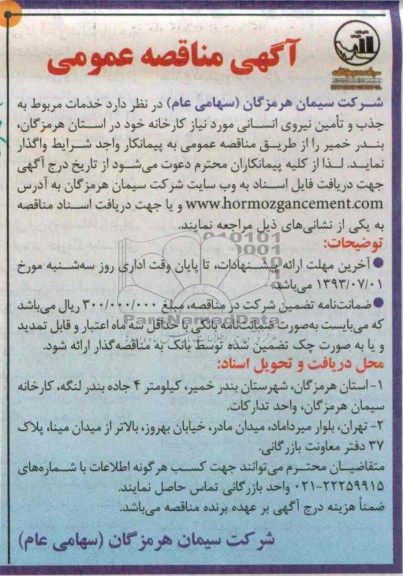 آگهی مناقصه عمومی
شرکت سیمان هرمزگان (سهامی عام) در نظر دارد خدمات مربوط به
جذب و تأمین نیروی انسانی مورد نیاز کارخانه خود در استان هرمزگان،
بندر خمیر را از طریق مناقصه عمومی به پیمانکار واجد شرایط واگذار
نماید. لذا از کلیه پیمانکاران محترم دعوت می‌شود از تاریخ درج آگهی
جهت دریافت فایل اسناد به وب سایت شرکت سیمان هرمزگان به آدرس
www.hormozgancement.com و یا جهت دریافت اسناد مناقصه
به یکی از نشانی‌های ذیل مراجعه نمایند.
توضیحات:
● آخرین مهلت ارائه پیشنهادات، تا پایان وقت اداری روز سه‌شنبه مورخ
۱۳۹۳/۰۷/۰۱ می‌باشد.
● ضمانت‌نامه تضمین شرکت در مناقصه، مبلغ ۳۰۰/۰۰۰/۰۰۰ ریال می‌باشد
که می‌بایست به‌صورت ضمانت‌نامه بانکی با حداقل سه ماه اعتبار و قابل تمدید
و یا به صورت چک تضمین شده توسط بانک به مناقصه‌گذار ارائه شود.
محل دریافت و تحویل اسناد:
۱- استان هرمزگان، شهرستان بندر خمیر، کیلومتر ۴ جاده بندر لنگه، کارخانه
سیمان هرمزگان، واحد تدارکات.
۲- تهران، بلوار میرداماد، میدان مادر، خیابان بهروز، بالاتر از میدان مینا، پلاک
۳۷ دفتر معاونت بازرگانی.
متقاضیان محترم می‌توانند جهت کسب هرگونه اطلاعات با شماره‌های
۰۲۱-۲۲۲۵۹۹۱۵ واحد بازرگانی تماس حاصل نمایند.
ضمناً هزینه درج آگهی بر عهده برنده مناقصه می‌باشد.
شرکت سیمان هرمزگان (سهامی عام)
ParsNamadData